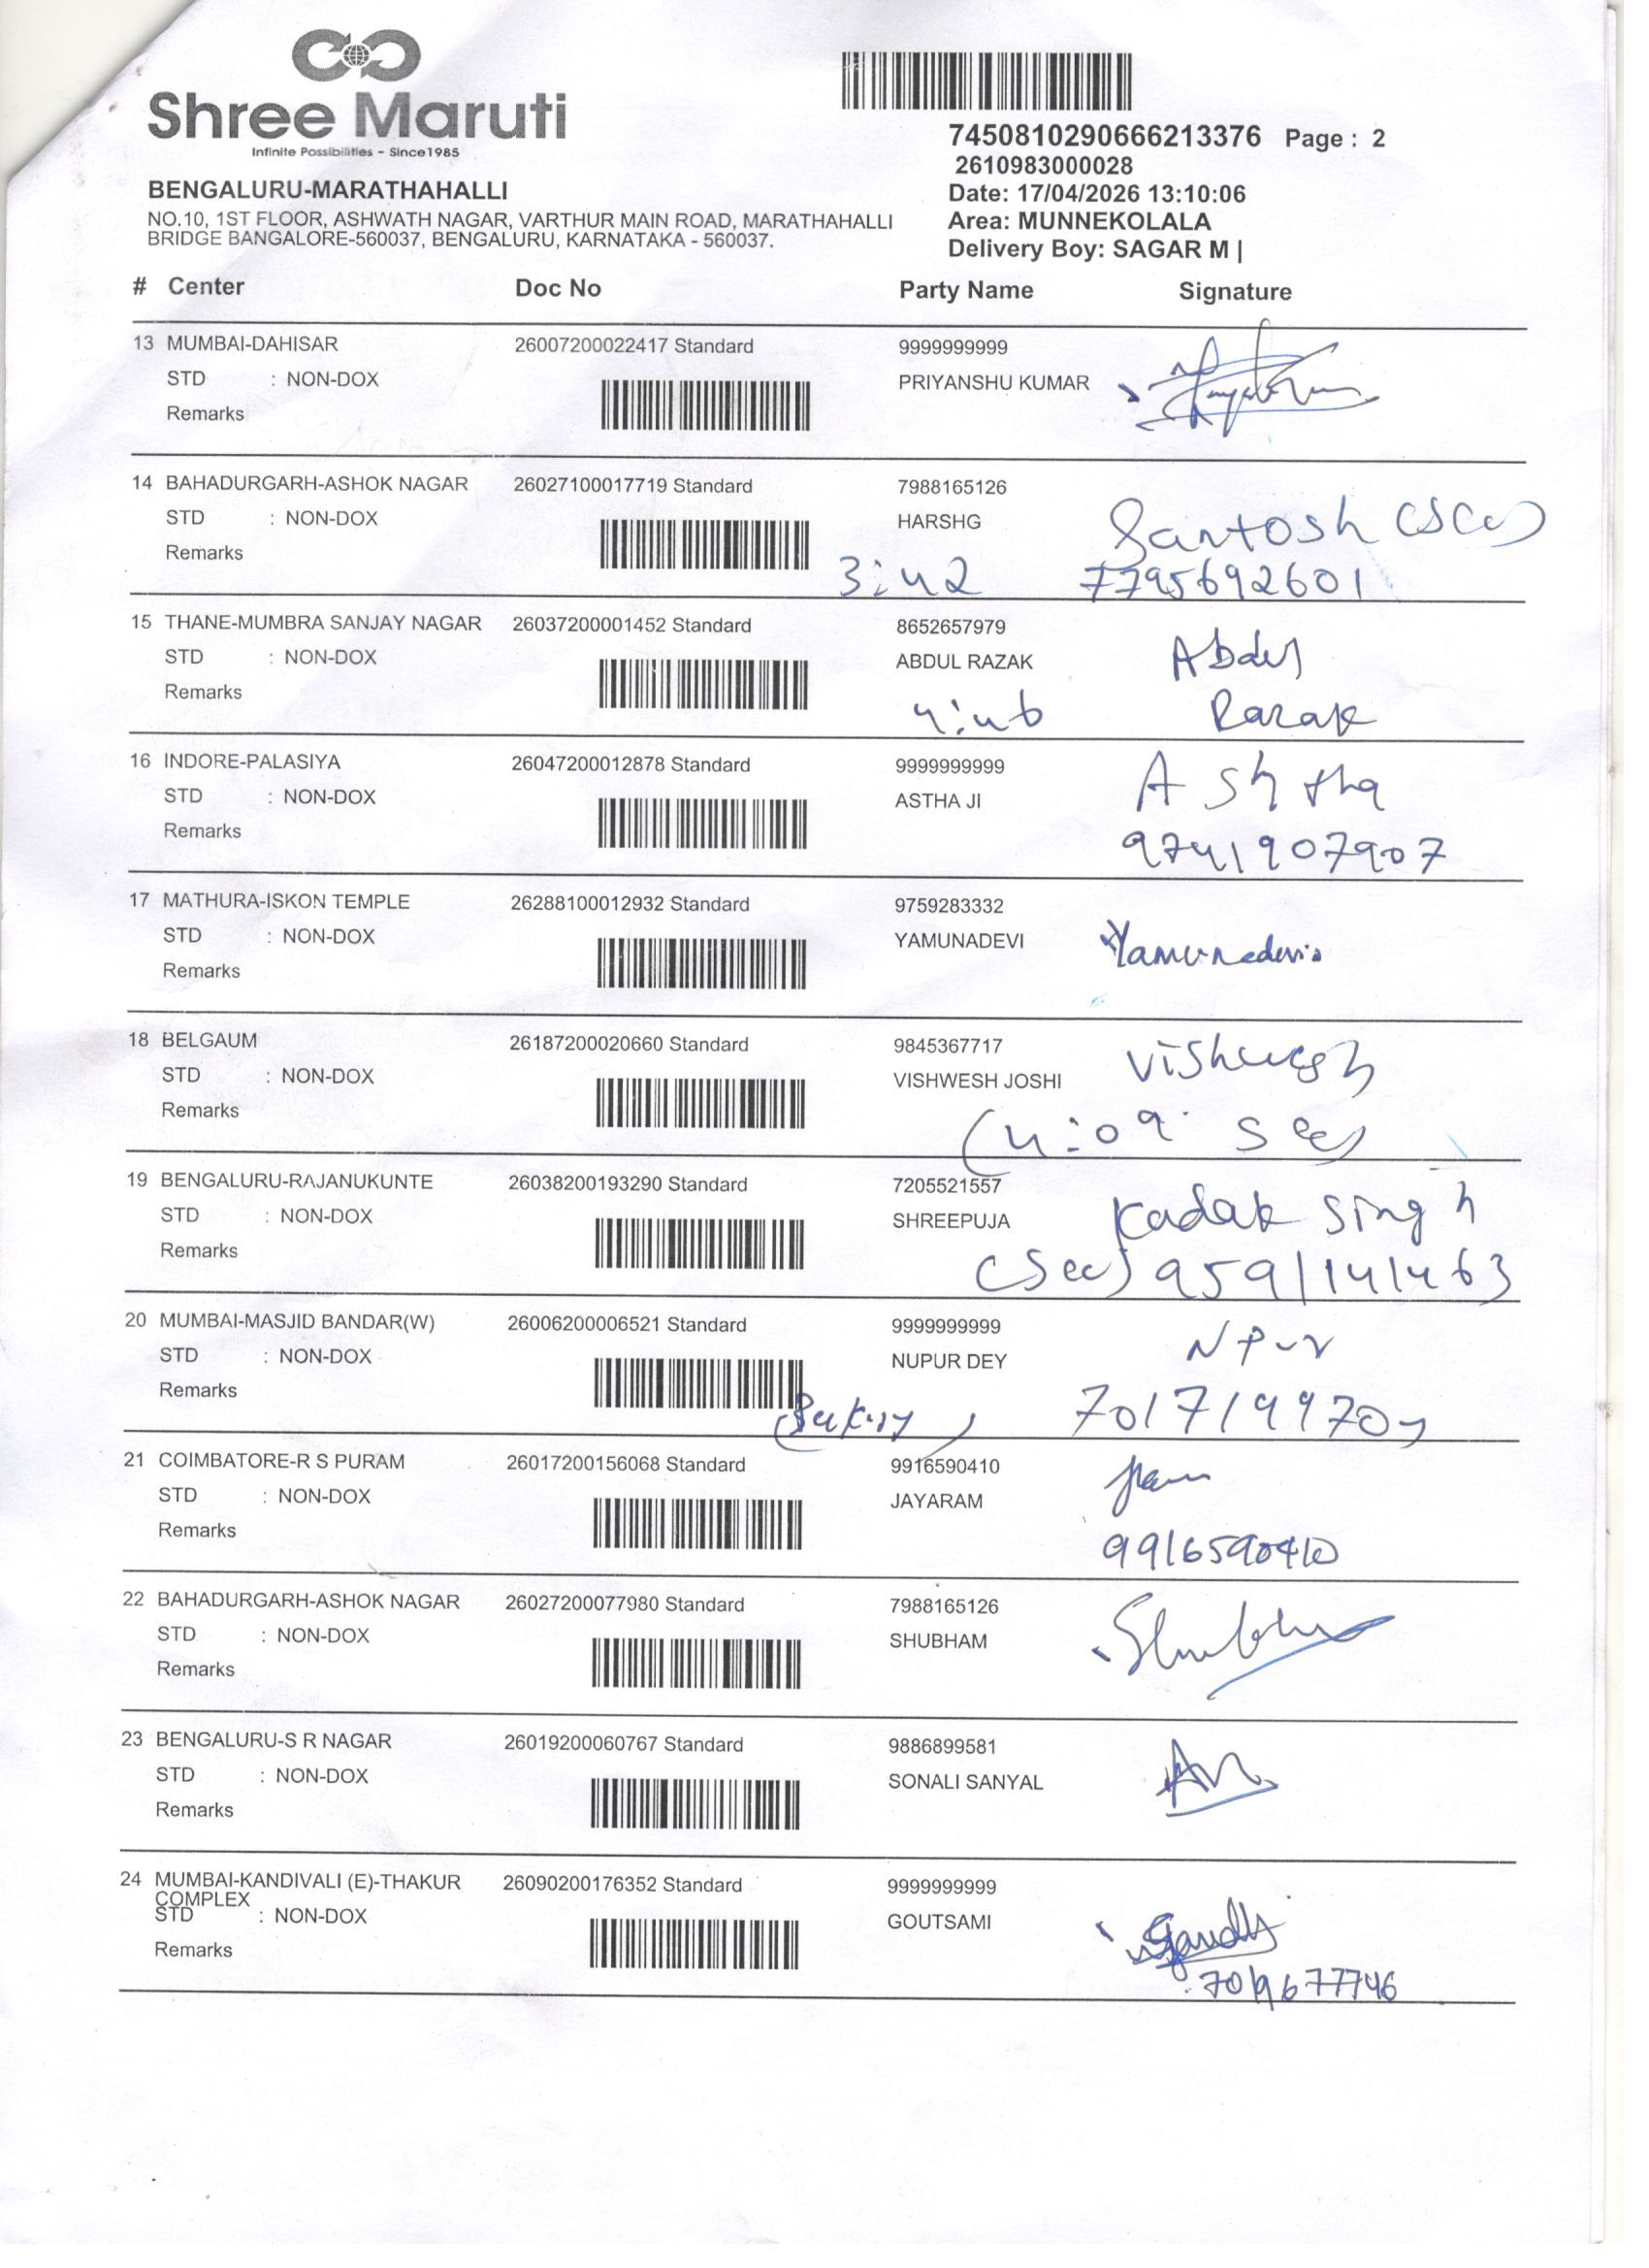 Shree Maruti
Infinite Possibilities - Since1985
7450810290666213376 Page : 2
2610983000028
BENGALURU-MARATHAHALLI
Date: 17/04/2026 13:10:06
NO.10, 1ST FLOOR, ASHWATH NAGAR, VARTHUR MAIN ROAD, MARATHAHALLI
Area: MUNNEKOLALA
BRIDGE BANGALORE-560037, BENGALURU, KARNATAKA - 560037.
Delivery Boy: SAGAR M |
# Center Doc No Party Name Signature
13 MUMBAI-DAHISAR 26007200022417 Standard 9999999999
STD : NON-DOX PRIYANSHU KUMAR
Remarks
14 BAHADURGARH-ASHOK NAGAR 26027100017719 Standard 7988165126
STD : NON-DOX HARSHG Santosh
Remarks 3:42 7795692601
15 THANE-MUMBRA SANJAY NAGAR 26037200001452 Standard 8652657979
STD : NON-DOX ABDUL RAZAK Abdul
Remarks Razak
16 INDORE-PALASIYA 26047200012878 Standard 9999999999
STD : NON-DOX ASTHA JI Ashtha
Remarks 9741907907
17 MATHURA-ISKON TEMPLE 26288100012932 Standard 9759283332
STD : NON-DOX YAMUNADEVI Yamunadevi
Remarks
18 BELGAUM 26187200020660 Standard 9845367717
STD : NON-DOX VISHWESH JOSHI Vishwesh
Remarks (4:09 Sec)
19 BENGALURU-RAJANUKUNTE 26038200193290 Standard 7205521557
STD : NON-DOX SHREEPUJA Kadak Singh
Remarks (Sec) 9591141463
20 MUMBAI-MASJID BANDAR(W) 26006200006521 Standard 9999999999
STD : NON-DOX NUPUR DEY
Remarks
21 COIMBATORE-R S PURAM 26017200156068 Standard 9916590410
STD : NON-DOX JAYARAM
Remarks 9916590410
22 BAHADURGARH-ASHOK NAGAR 26027200077980 Standard 7988165126
STD : NON-DOX SHUBHAM Shubham
Remarks
23 BENGALURU-S R NAGAR 26019200060767 Standard 9886899581
STD : NON-DOX SONALI SANYAL
Remarks
24 MUMBAI-KANDIVALI (E)-THAKUR 26090200176352 Standard 9999999999
COMPLEX
STD : NON-DOX GOUTSAMI
Remarks
7019677746